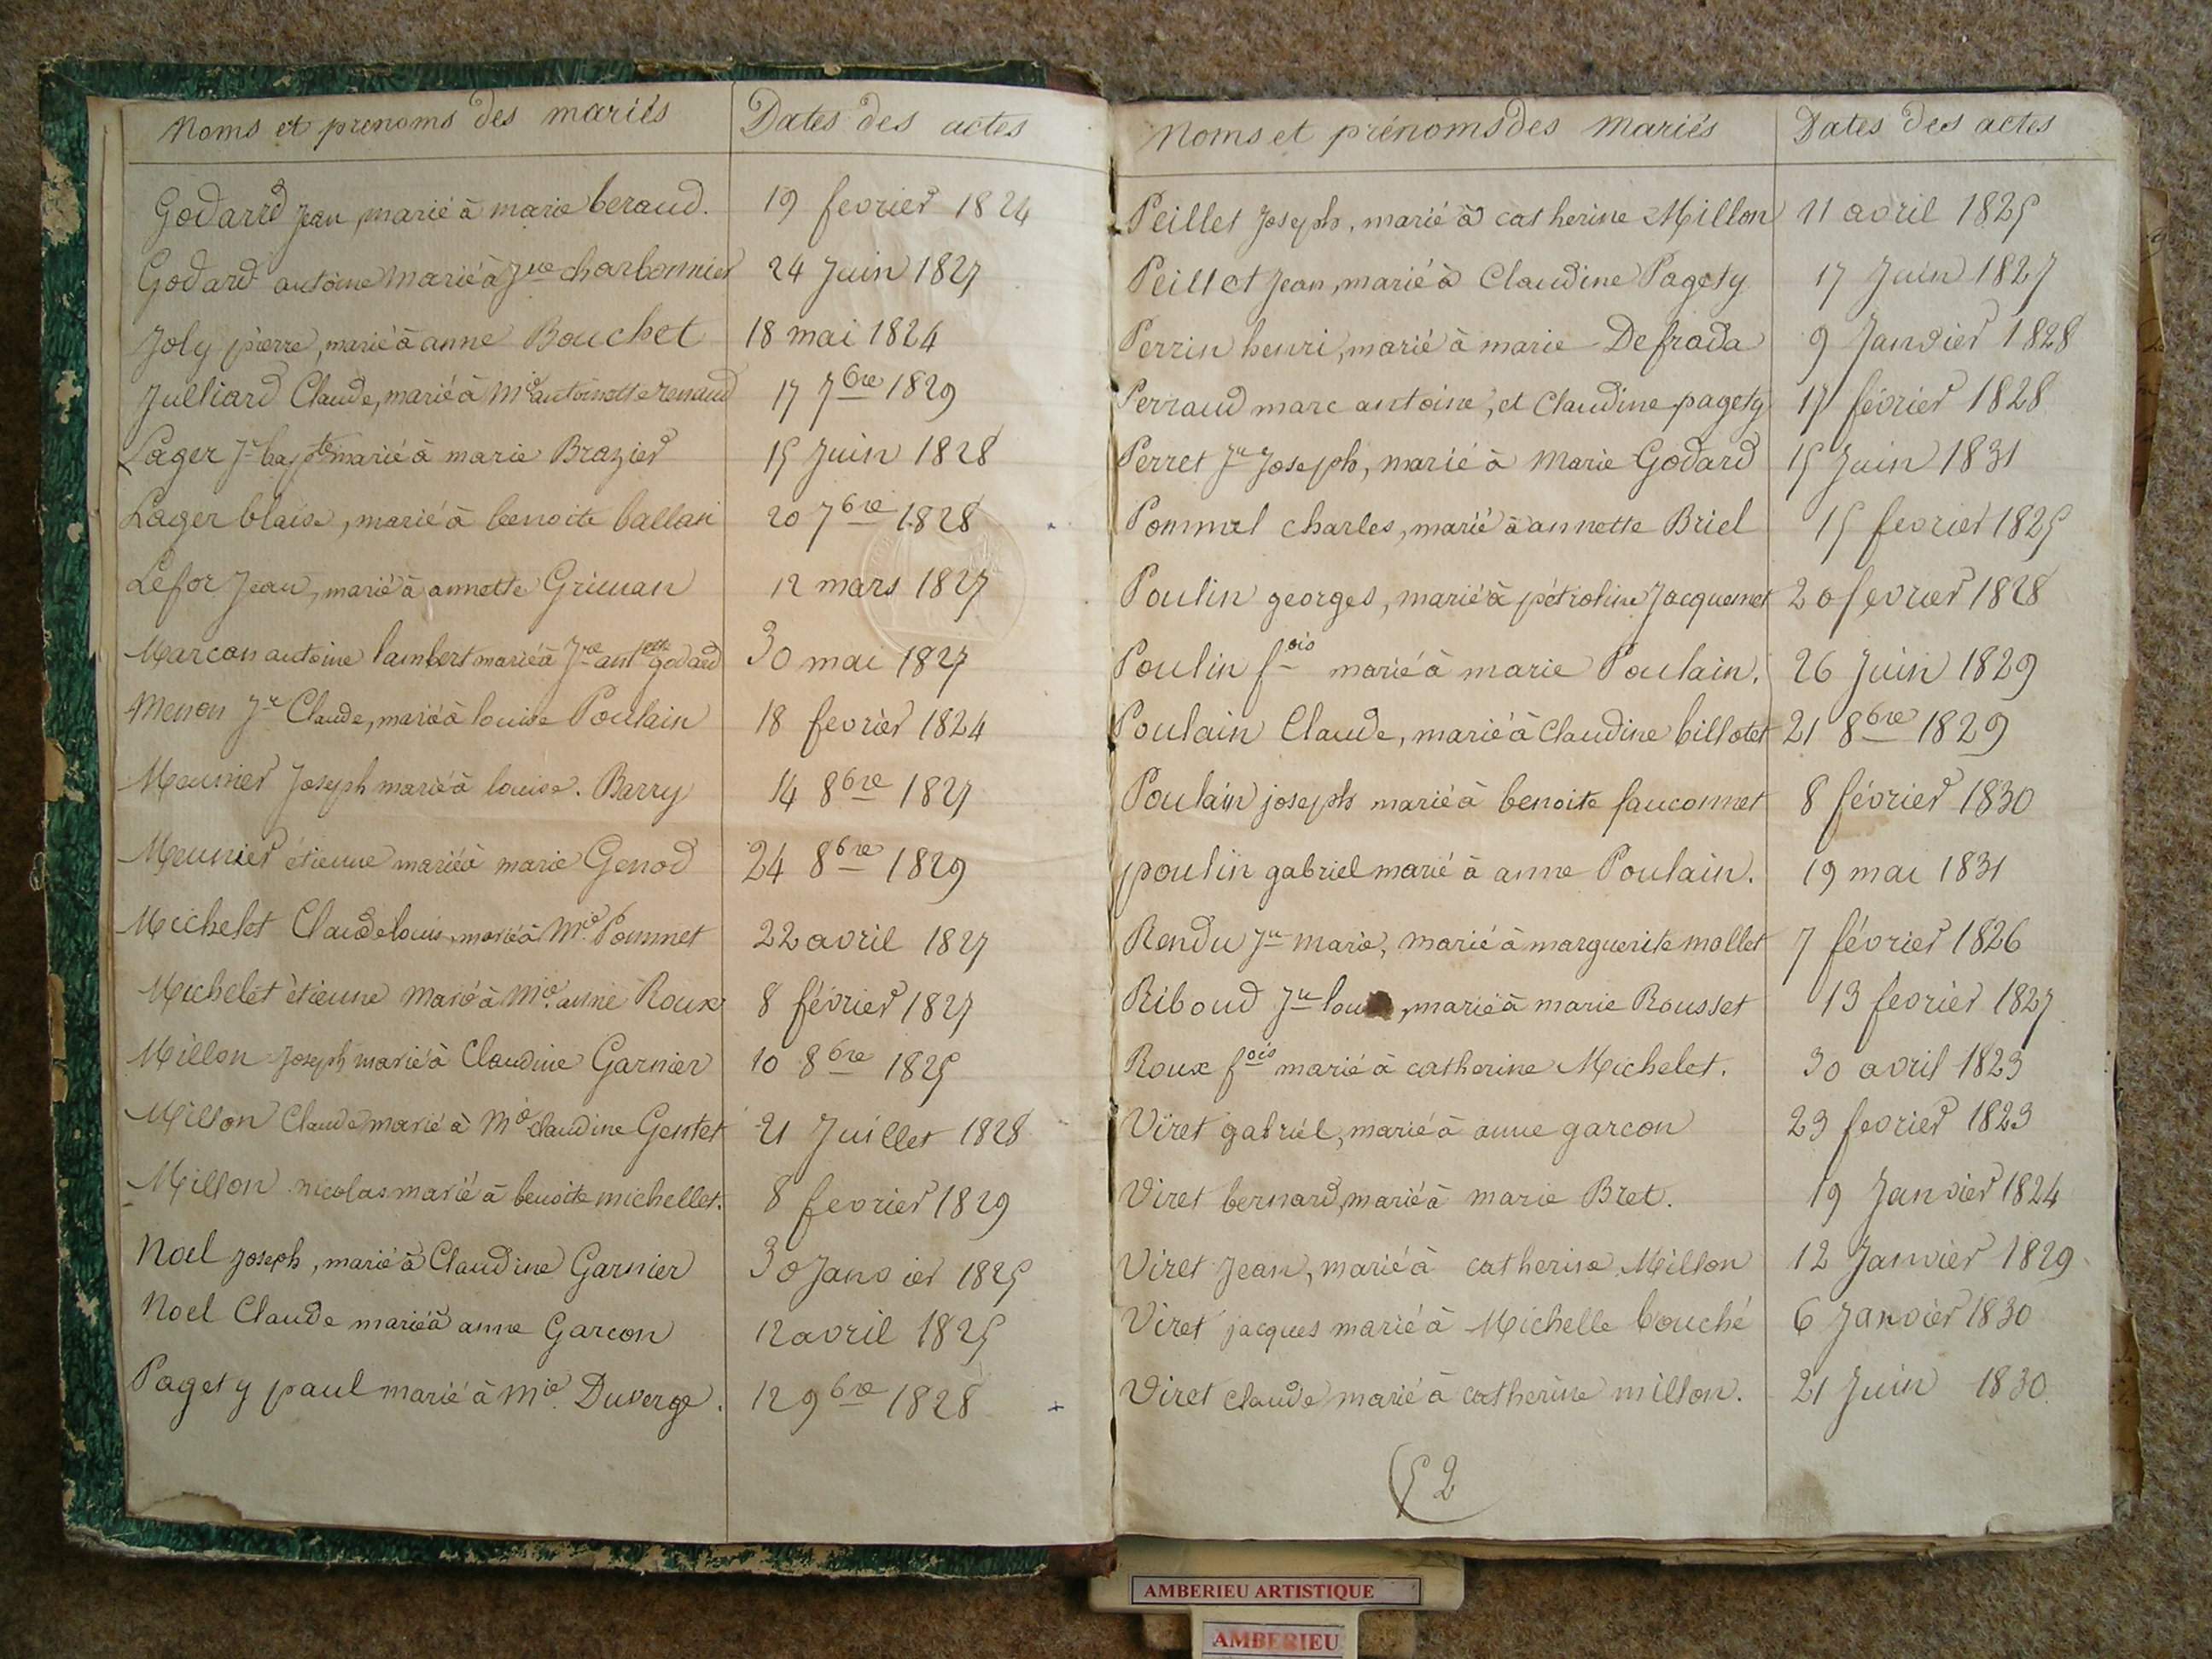 Noms et prenoms des mariés Dates des actes
Godard Jean, marié à marie beraud. 19 fevrier 1824
Godard antoine marié à Jne charbonnier 24 Juin 1827
Joly pierre, marié à anne Bouchet 18 mai 1824
Julliard Claude, marié à Mie antoinette renaud 17 7bre 1829
Lager Jn bapte marié à marie Brazier 15 Juin 1828
Lager blaise, marié à benoite ballan 20 7bre 1828
Lefor Jean, marié à annette 12 mars 1827
Marcon antoine lambert marié à Jne antette godard 30 mai 1827
Menon Jn Claude, marié à louise Poulain 18 fevrier 1824
Meunier Joseph marié à louise. Barry 14 8bre 1827
Meunier étienne marié à marie Genod 24 8bre 1829
Michelet Claude louis, marié à Mie Pommet 22 avril 1827
Michelet étienne marié à Mie anne Roux 8 février 1827
Millon Joseph marié à Claudine Garnier 10 8bre 1825
Millon Claude marié à Mie claudine Gentet 21 Juillet 1828
Millon nicolas marié à benoite michellet. 8 fevrier 1829
Noel Joseph, marié à Claudine Garnier 30 Janvier 1825
Noel Claude marié à anne Garcon 12 avril 1825
Pagety paul marié à Mie Duverge. 12 9bre 1828
Noms et prénoms des mariés Dates des actes
Peillet Joseph, marié à catherine Millon 11 avril 1825
Peillet Jean, marié à Claudine Pagety 17 Juin 1827
Perrin henri, marié à marie Defrada 9 Janvier 1828
Perraud marc antoine, et Claudine pagety 17 février 1828
Perret Jn Joseph, marié à Marie Godard 15 Juin 1831
Pommel charles, marié à annette Briel 15 fevrier 1825
Poulin georges, marié à pétroline Jacquemet 20 fevrier 1828
Poulin fois marié à marie Poulain. 26 Juin 1829
Poulain Claude, marié à Claudine billotet 21 8bre 1829
Poulain joseph marié à benoite fauconnet 8 février 1830
poulin gabriel marié à anne Poulain. 19 mai 1831
Rendu Jn marie, marié à marguerite mollet 7 février 1826
Riboud Jn, marié à marie Rousset 13 fevrier 1827
Roux fois marié à catherine Michelet. 30 avril 1823
Viret gabriel, marié à anne garcon 23 fevrier 1823
Viret bernard, marié à marie Bret. 19 Janvier 1824
Viret Jean, marié à catherine Millon 12 Janvier 1829
Viret jacques marié à Michelle bouché 6 Janvier 1830
Viret claude marié à catherine millon. 21 Juin 1830
52
AMBERIEU ARTISTIQUE
AMBERIEU